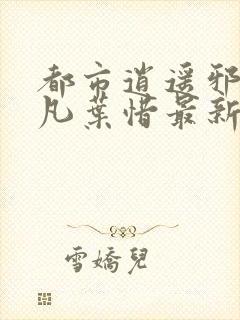 都市逍遥邪
凡葉惜最新
雪嬌兒